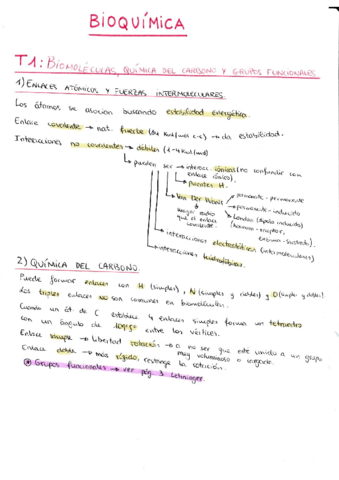 BIOQUÍMICA
T1: BIOMOLÉCULAS, QUÍMICA DEL CARBONO Y GRUPOS FUNCIONALES
1) ENLACES ATÓMICOS Y FUERZAS INTERMOLECULARES.
Los átomos se asocian buscando estabilidad energética.
Enlace covalente → nat. fuerte ( C-C) → da estabilidad.
Interacciones no covalentes → débiles (1-4 Kcal/mol)
↳ pueden ser → interacc. iónicas (no confundir con
enlace iónico).
→ puentes H.
→ Van Der Waals → permanente - permanente
→ permanente - inducido
→ London (dipolo inducido)
mayor radio
que el enlace
covalente.
(hormona - receptor,
enzima - sustrato).
→ interacciones electrostáticas (intermoleculares)
→ interacciones hidrofóbicas.
2) QUÍMICA DEL CARBONO.
Puede formar enlaces con H (simples), N (simples y dobles) y O (simple y doble)
Los triples enlaces no son comunes en biomoléculas.
Cuando un át de C establece 4 enlaces simples forma un tetraedro
con un ángulo de 109'5º entre los vértices.
Enlace simple → libertad rotación → a no ser que esté unido a un grupo
muy voluminoso o cargado.
Enlace doble → más rígido, restringe la rotación.
Grupos funcionales → ver pág. 3 Lehninger.